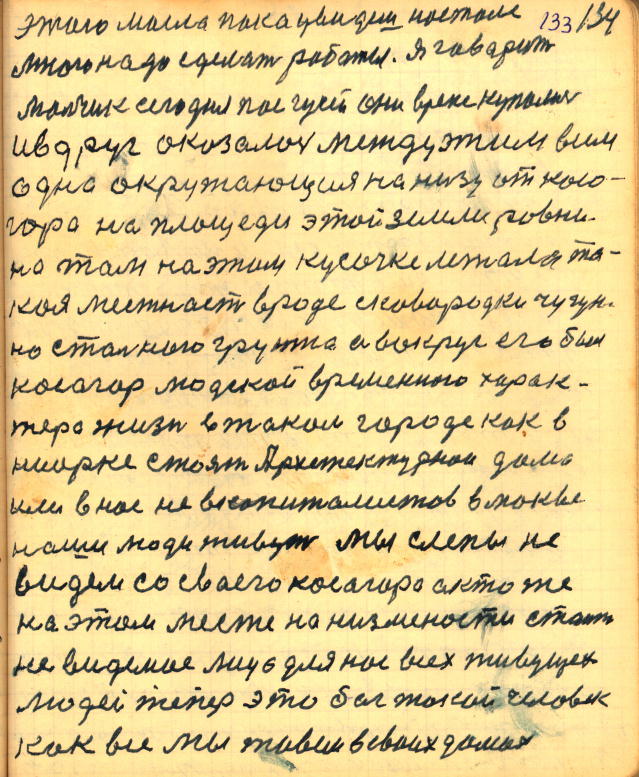 этого масла покацвидеш настоле 133 134
много надо сделат работы. я говарит
малчик сегодня пас гусей они вреке купалис
И вдруг оказалос междуэтим всим
одна окружающия на низу от косо-
гора на площеди этой земли ровни-
но там на этом кусочке лежала та-
коя местнаст вроде сковородки чугун-
но сталного грунта а вокруг его был
косагор людской временного харак-
тера жизн в таком городе как в
нюорке стоят Архетектурнаи дома
или в нас не вкопиталистов в москве
наши люди живут мы слепы не
видем со сваего косагора а кто же
на этом месте на низмености стоит
не видемое лицо для нас всех живущех
людей тепер это был такой человек
как все мы живем в сваих домах